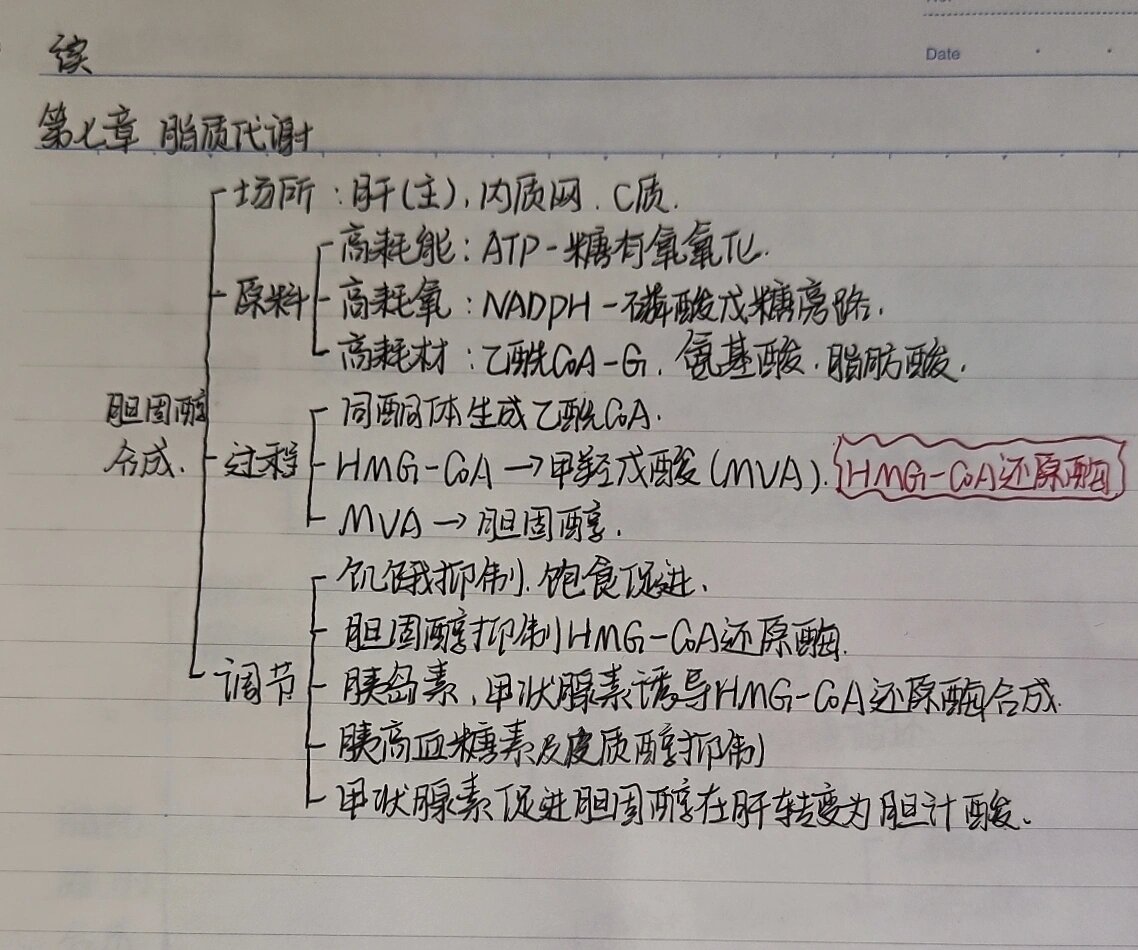 续
Date
第七章 脂质代谢
场所：肝(主)，内质网．C质．
高耗能：ATP-糖有氧氧化．
原料 高耗氧：NADPH-磷酸戊糖旁路．
高耗材：乙酰CoA-G．氨基酸．脂肪酸．
胆固醇
合成．
同酮体生成乙酰CoA．
过程 HMG-CoA→甲羟戊酸(MVA)．HMG-CoA还原酶
MVA→胆固醇．
饥饿抑制．饱食促进．
胆固醇抑制HMG-CoA还原酶．
调节 胰岛素、甲状腺素诱导HMG-CoA还原酶合成．
胰高血糖素及皮质醇抑制
甲状腺素促进胆固醇在肝转变为胆汁酸．